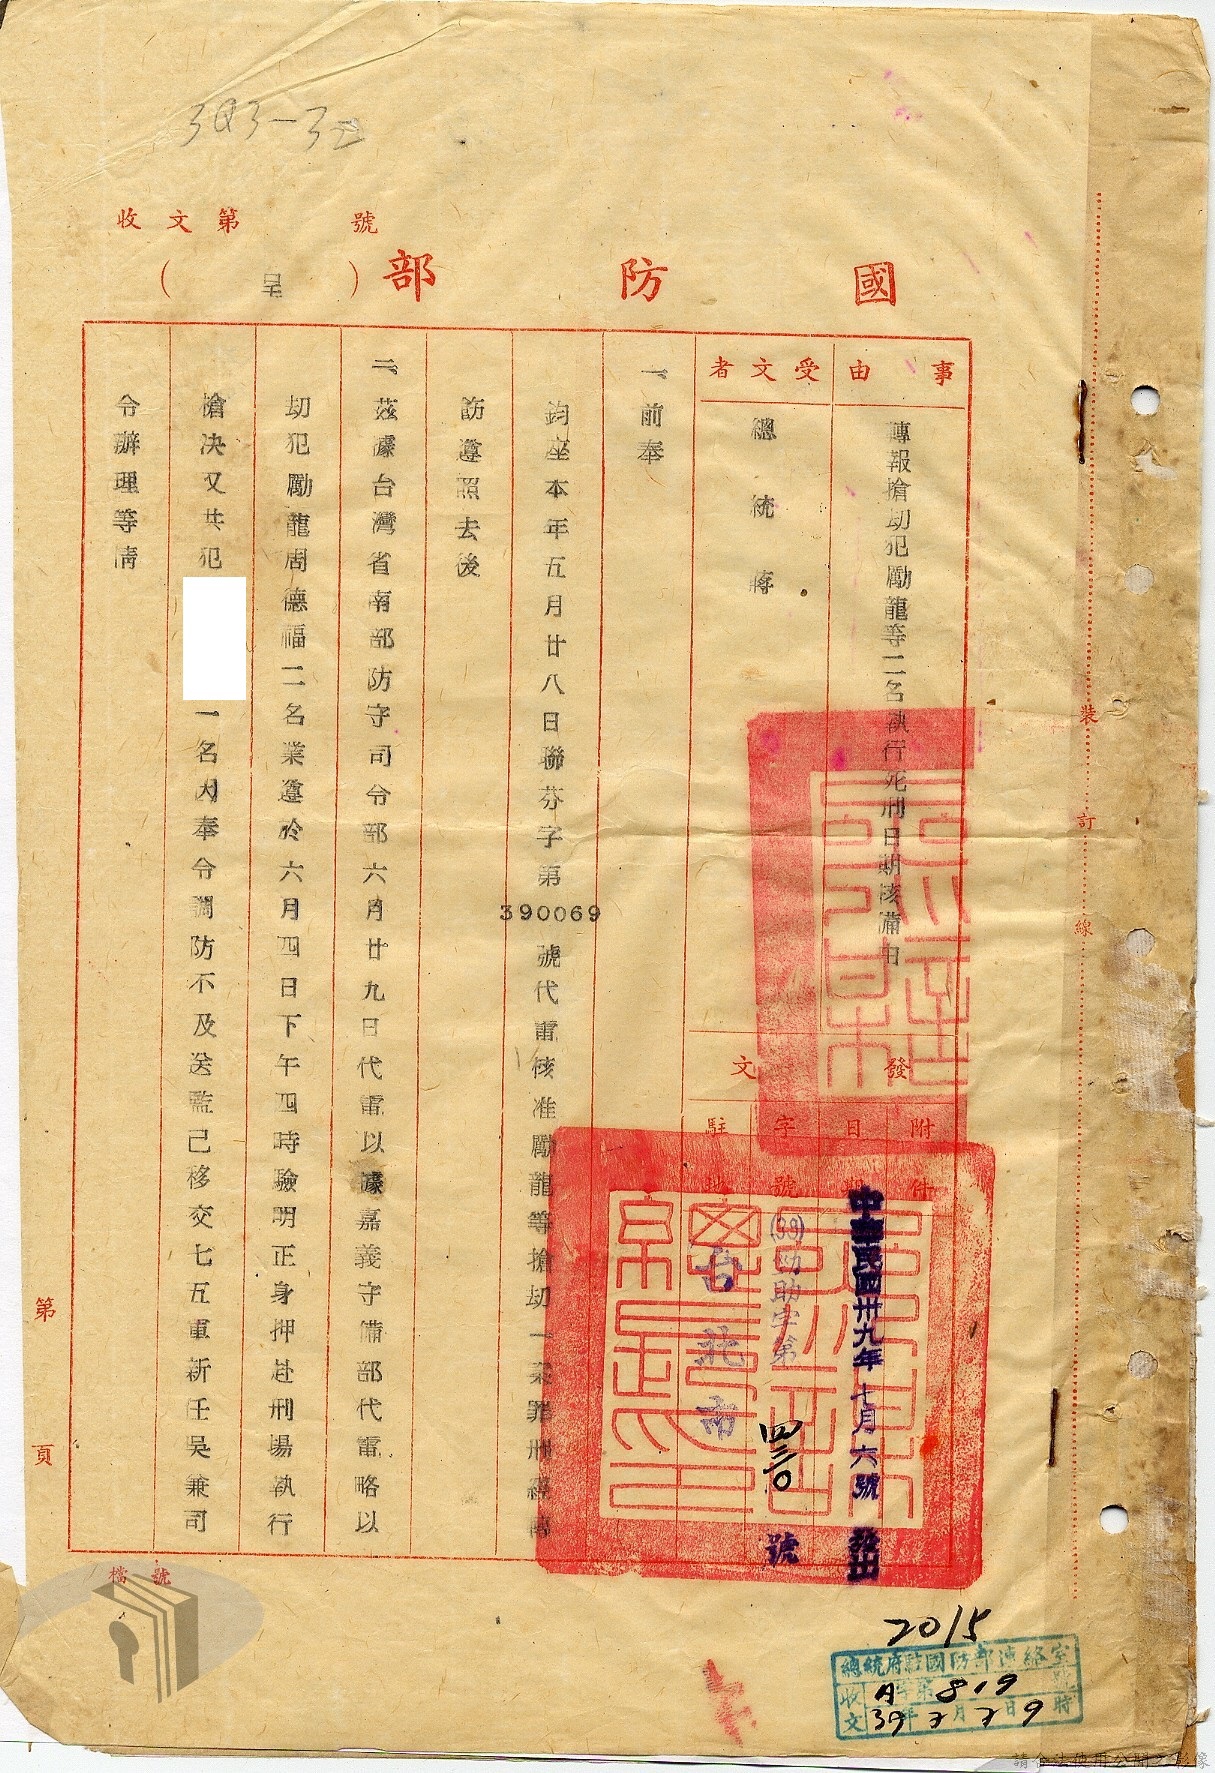 3Q3-3
收文第　號
國防部（呈）
事由
轉報搶劫犯勵龍等二名執行死刑日期核備由
受文者
總統蔣
發文
附件
日期
中華民國卅九年七月六號發出
字號
(39)功助字第四三〇號
駐地
台北市
一、前奉
鈞座本年五月廿八日聯芬字第390069號代電核准勵龍等搶劫一案罪刑經轉
飭遵照去後
二、茲據台灣省南部防守司令部六月廿九日代電以據嘉義守備部代電略以
劫犯勵龍周德福二名業遵於六月四日下午四時驗明正身押赴刑場執行
槍決又共犯　一名因奉令調防不及送監已移交七五軍新任吳兼司
令辦理等情
裝訂線
第　頁
檔號
2015
總統府駐國防部連絡室
收文　A字第819號
39年7月7日9時
請合法使用公開之影像